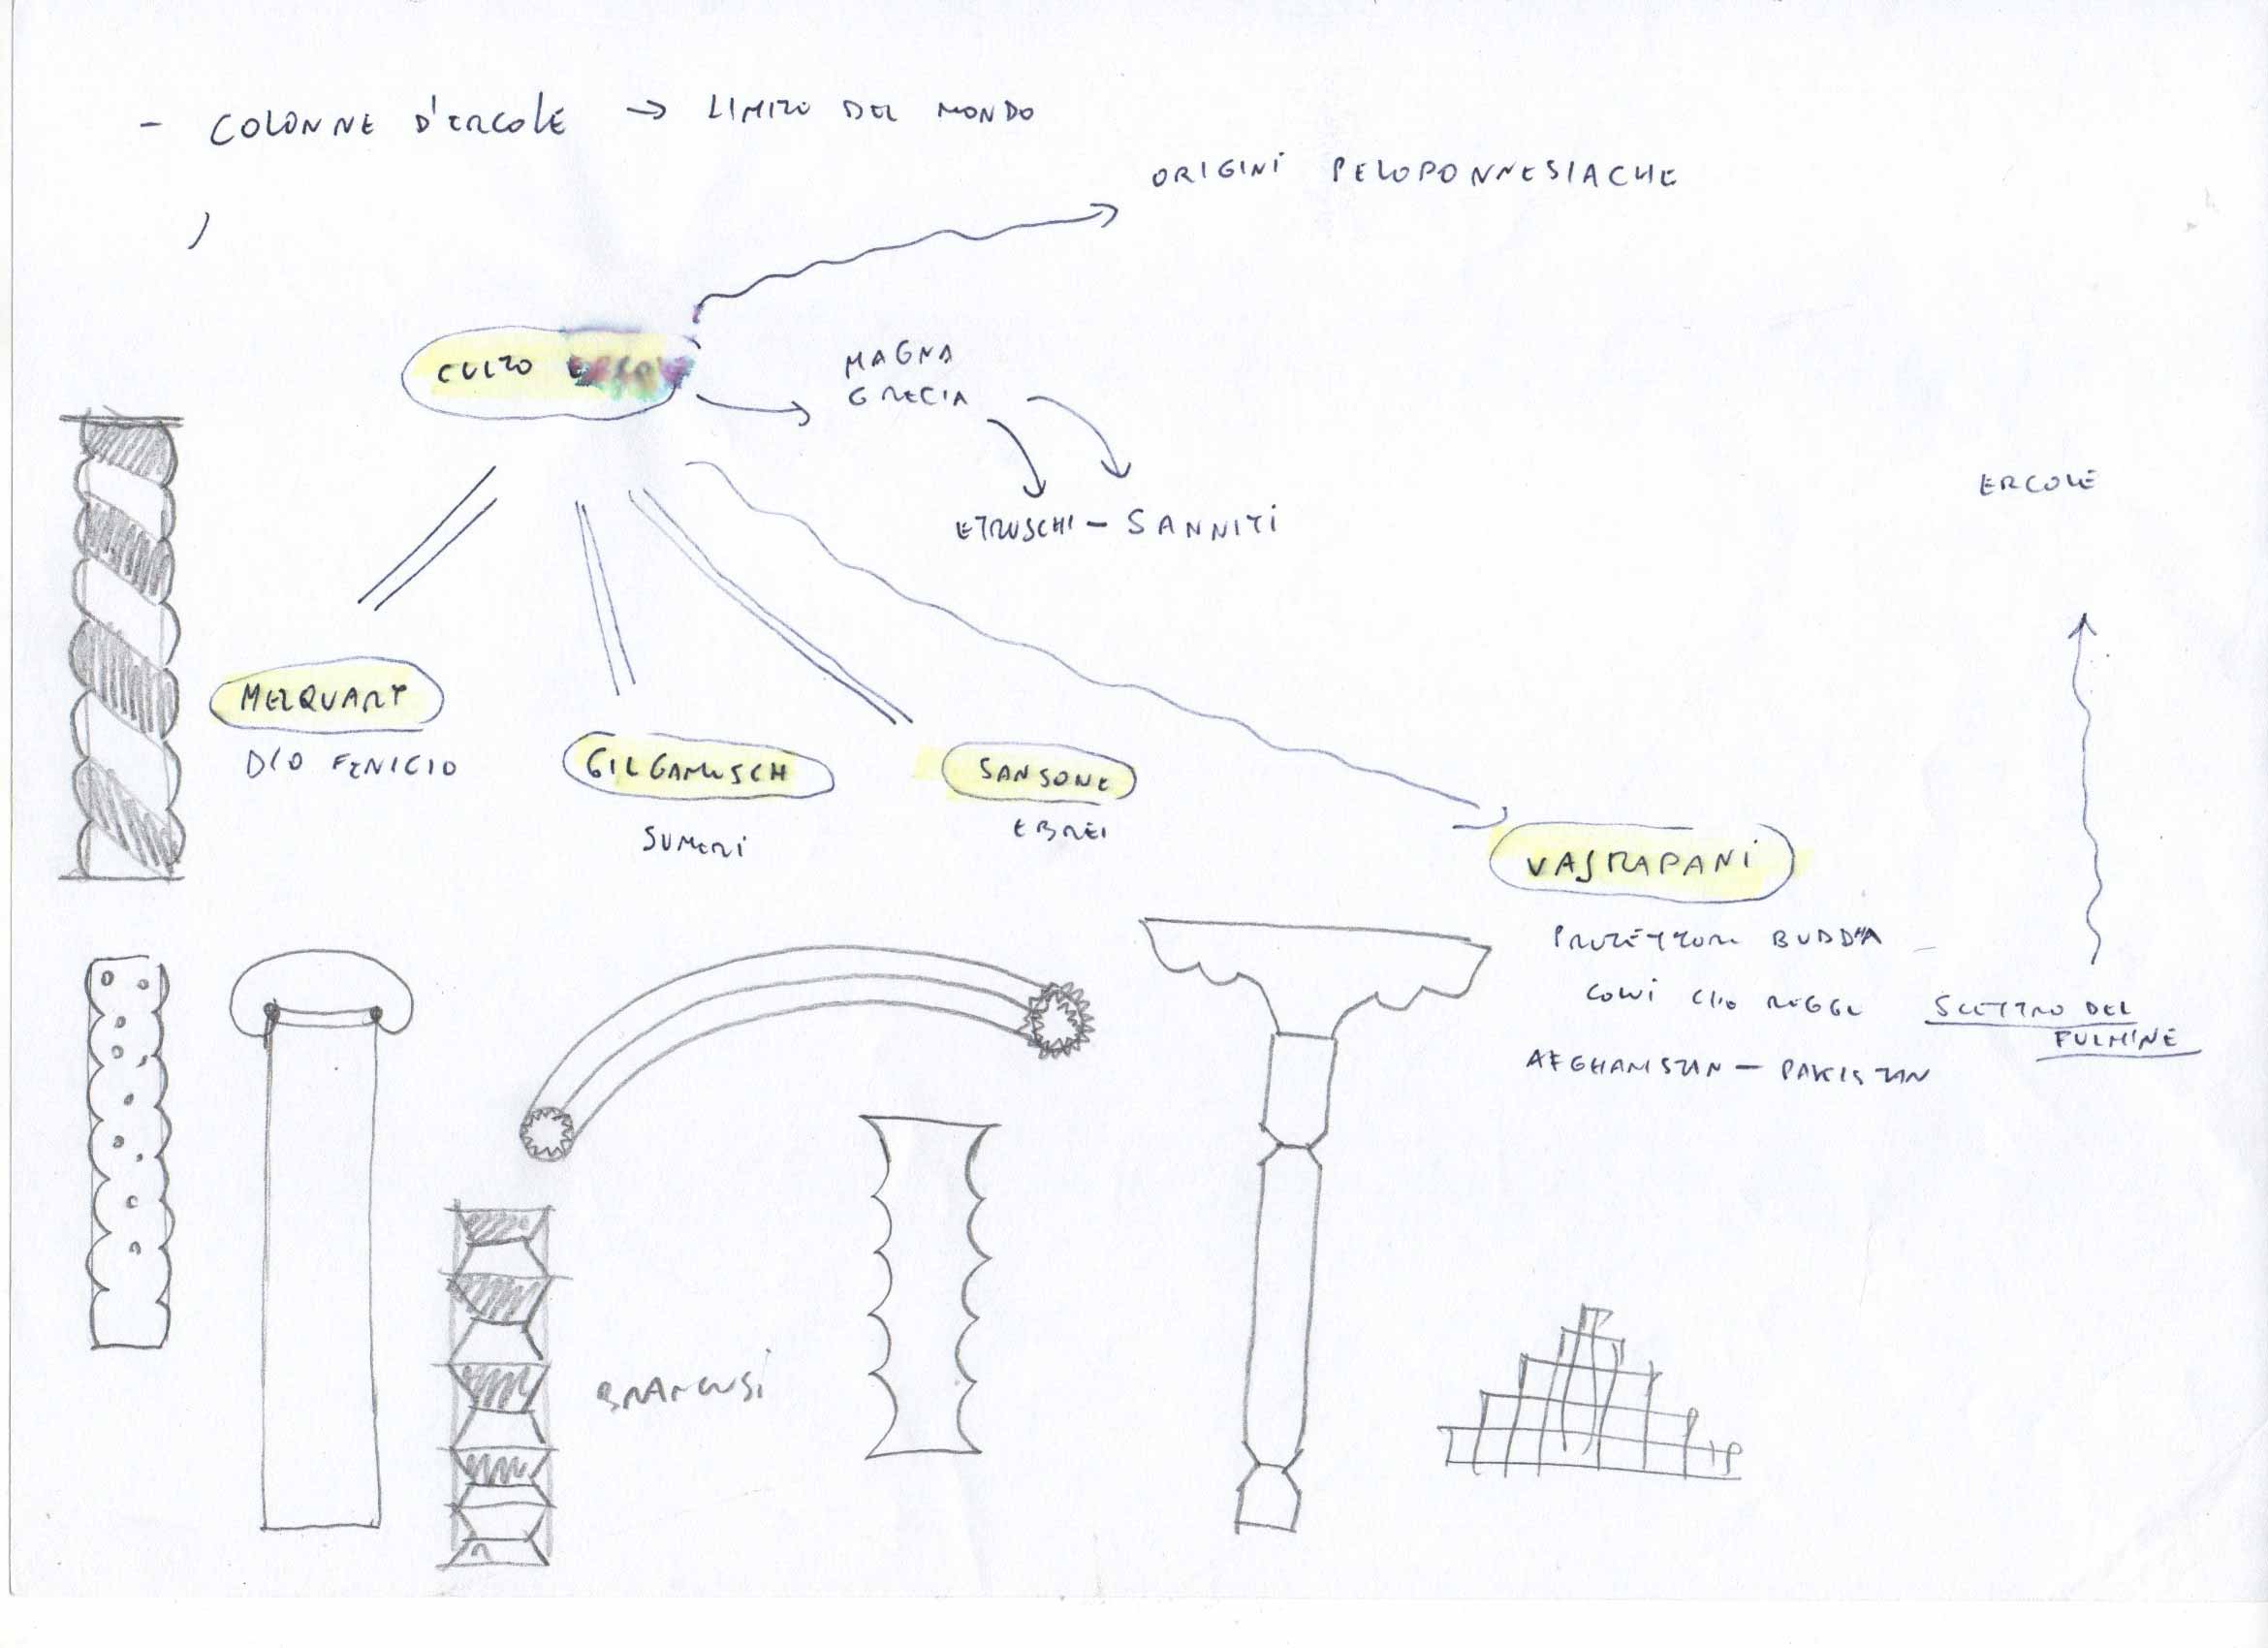 - COLONNE D'ERCOLE → LIMITE DEL MONDO
ORIGINI PELOPONNESIACHE
CULTO
MAGNA
GRECIA
ETRUSCHI - SANNITI
ERCOLE
MELQUART
DIO FENICIO
GILGAMUSCH
SUMERI
SANSONE
EBREI
VAJRAPANI
PROTETTORE BUDDHA
COLUI CHE REGGE SCETTRO DEL
FULMINE
AFGHANISTAN - PAKISTAN
BRANCUSI